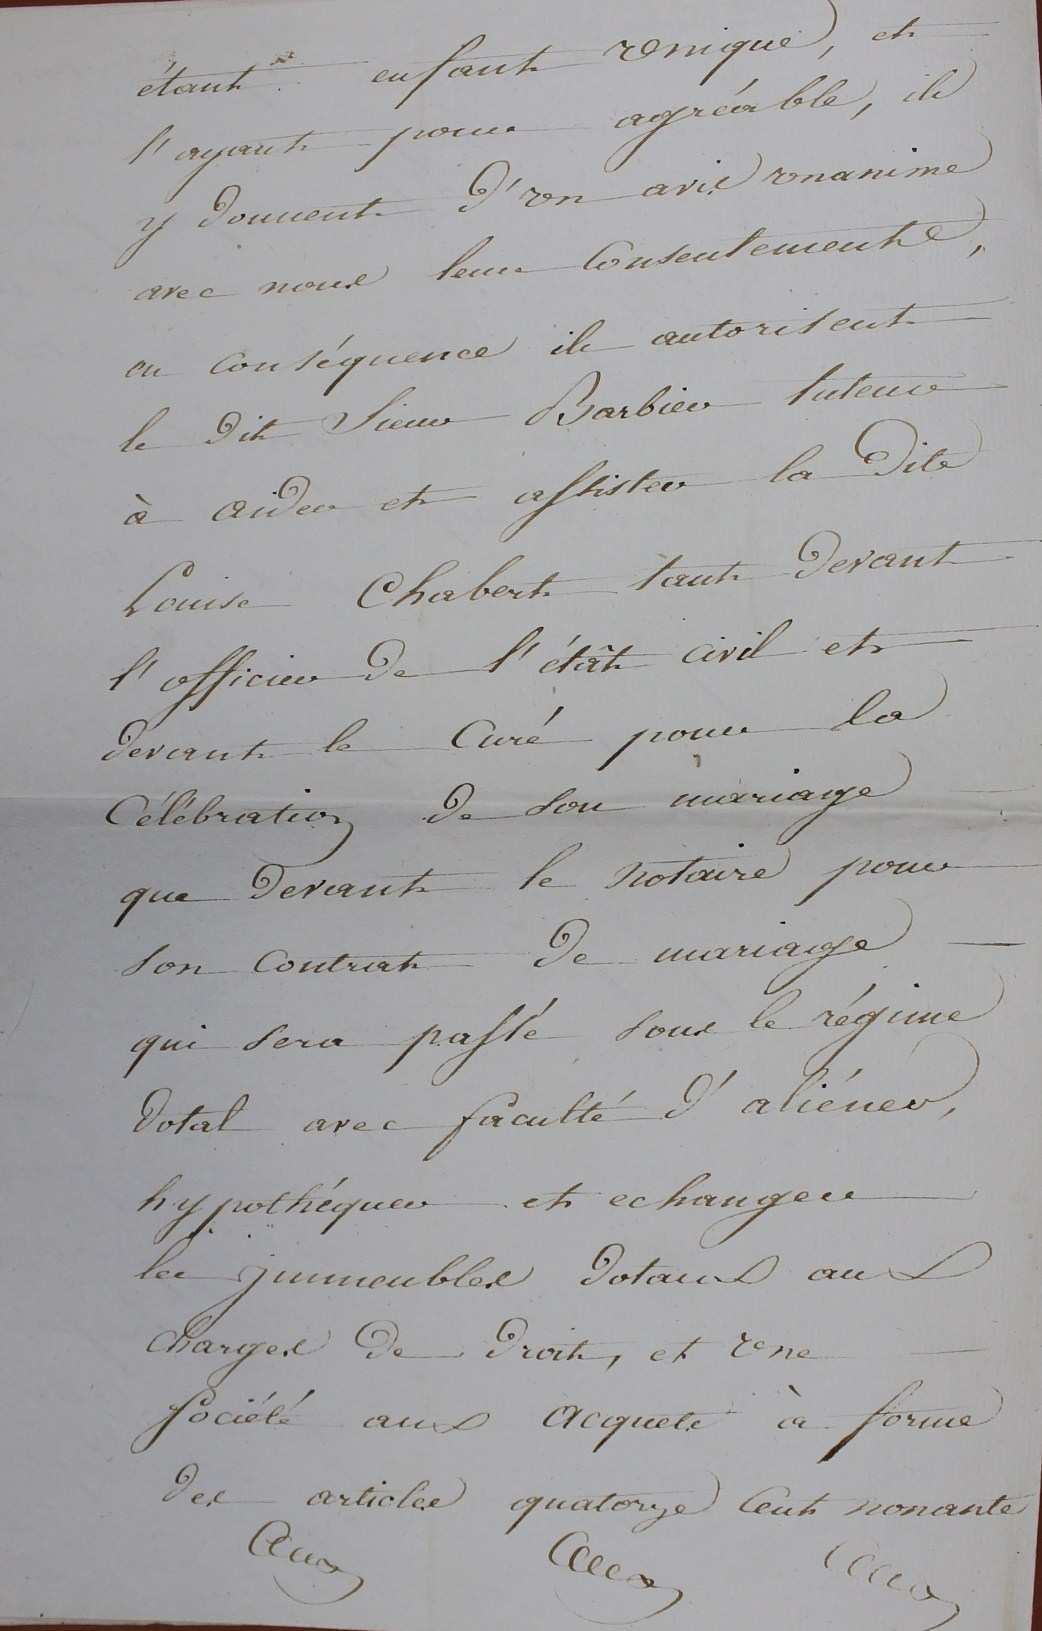 étant enfant unique, et
l'ayant pour agréable, ils
y donnent d'un avis unanime
avec nous leur Consentement,
en conséquence ils autorisent
le dit Sieur Barbier tuteur
à aider et assister la dite
Louise Chabert tant devant
l'officier de l'étât civil et
devant le Curé pour la
Célébration de son mariage
que devant le notaire pour
son contrat de mariage
qui sera passé sous le régime
dotal avec faculté d'aliéner,
hypothéquer et echanger
les immeubles dotaux aux
charges de droit, et une
société aux acquets à forme
des articles quatorze Cent nonante